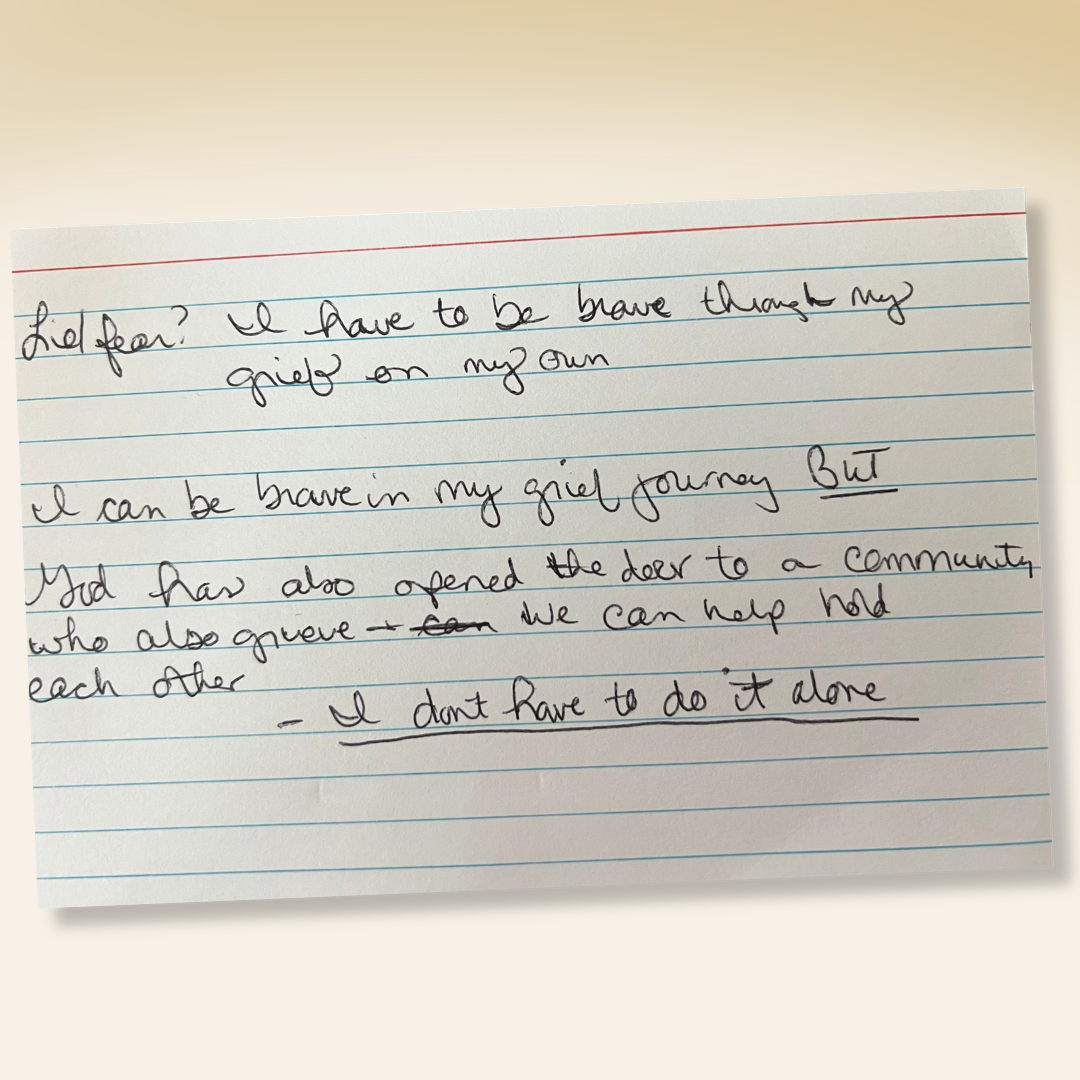 Lie/fear? I have to be brave through my
grief on my own
I can be brave in my grief journey BUT
God has also opened the door to a community
who also grieve – can We can help hold
each other
- I dont have to do it alone